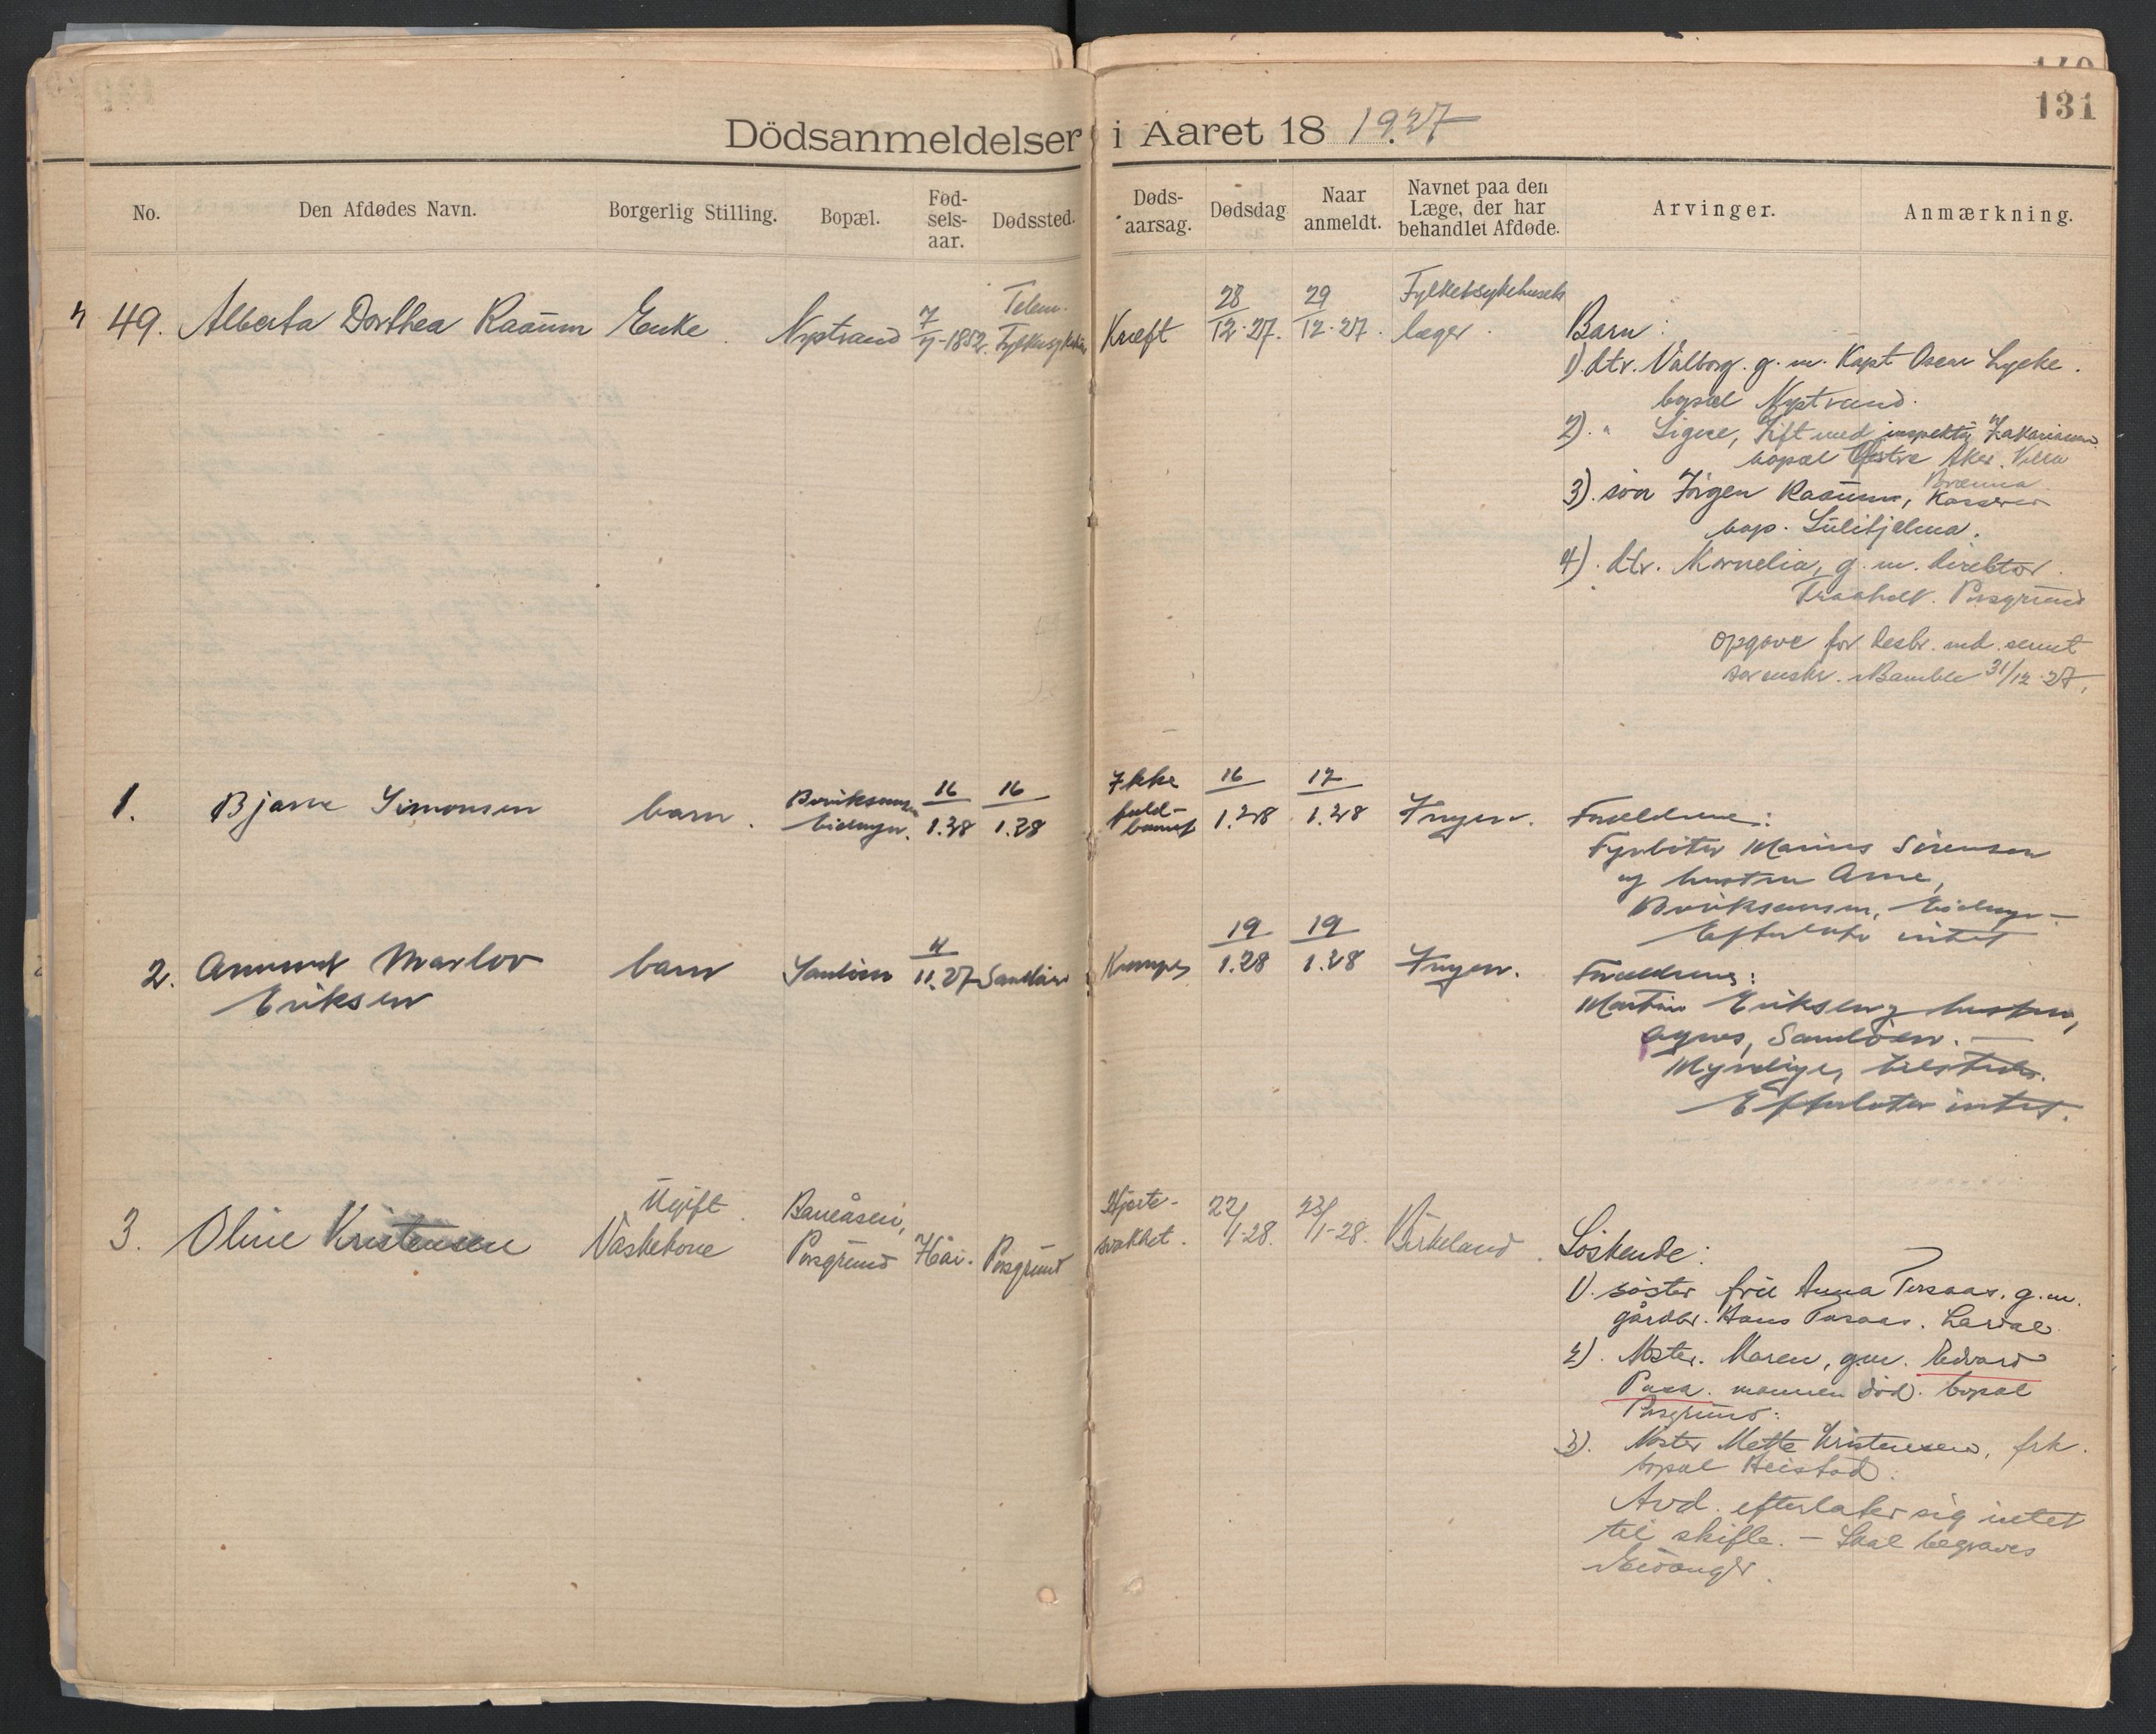 131
Dödsanmeldelser i Aaret 18 1927
No. Den Afdødes Navn. Borgerlig Stilling. Bopæl. Fød-sels-aar. Dødssted. Døds-aarsag. Dødsdag Naar anmeldt. Navnet paa den Læge, der har behandlet Afdøde. Arvinger. Anmærkning.
49. Alberta Dorthea Raaum Enke. Nystrand 7/7-1852. Telem. Fylkessykehus Kræft 28/12-27. 29/12-27. Fylkessykehusets læger.
Barn:
1) dtr. Valborg. g. m. Kapt Oscar Lycke.
bopæl Nystrand.
2). " Signe, Gift med inspektør Zakariassen
bopæl Østre Aker. Villa
3). søn Jörgen Raaum, Kasserer
bop. Sulitjelma.
4). dtr. Kornelia, g. m. direktör
Traaholt. Porsgrund
Opgave for desbr. md. sendt
sorenskr. Bamble 31/12-27.
1. Bjarne Simonsen barn. 16/1.28 16/1.28 Ikke fuld- 16/1.28 17/1.28 Ingen. Forældrene:
Fyrbøter Marius Sörensen
og hustru
Efterlater intet
2. Amund Marlov barn Sandöen 4/11.27 Sandöen Kramper 19/1.28 19/1.28 Ingen. Forældrene:
Eriksen
Martin Eriksen og hustru,
Agnes, Sandöen. —
Myndiger tilstede.
Efterlater intet.
3. Oline Kristensen Ugift. Vaskekone Baneåsen, Porsgrund 76 år. Porsgrund Hjerte-svakhet. 22/1-28. 23/1-28. Birkeland. Söskende:
1). söster frue Anna Torsaas. g. m.
gårdbr. Hans Torsaas. Lardal
2). Söster. Maren, g.m. Edvard
mannen död. bopæl
Porsgrund:
3). Söster Mette Kristensen, frk.
bopæl Heistad.
Avd. efterlater sig intet
til skifte. — Skal begraves
Eidanger.